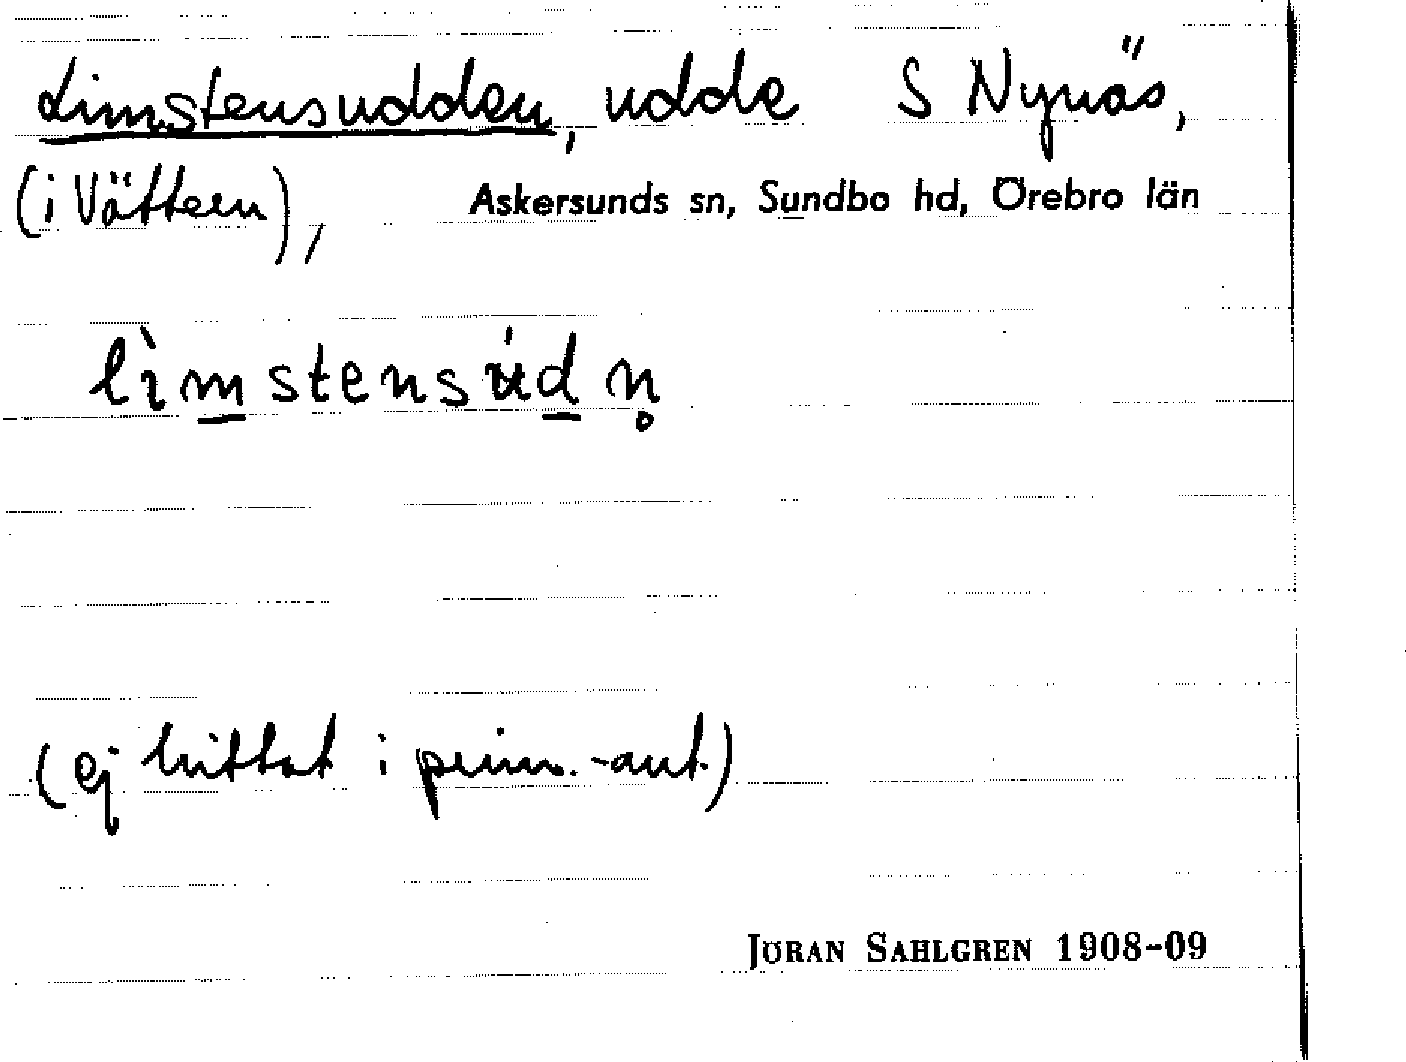 Limstensudden, udde S Nynäs,
(i Vättern), Askersunds sn, Sundbo hd, Örebro län
lìm̲stensúd̲n̥
(ej hittat i prim.-ant.)
JÖRAN SAHLGREN 1908-09